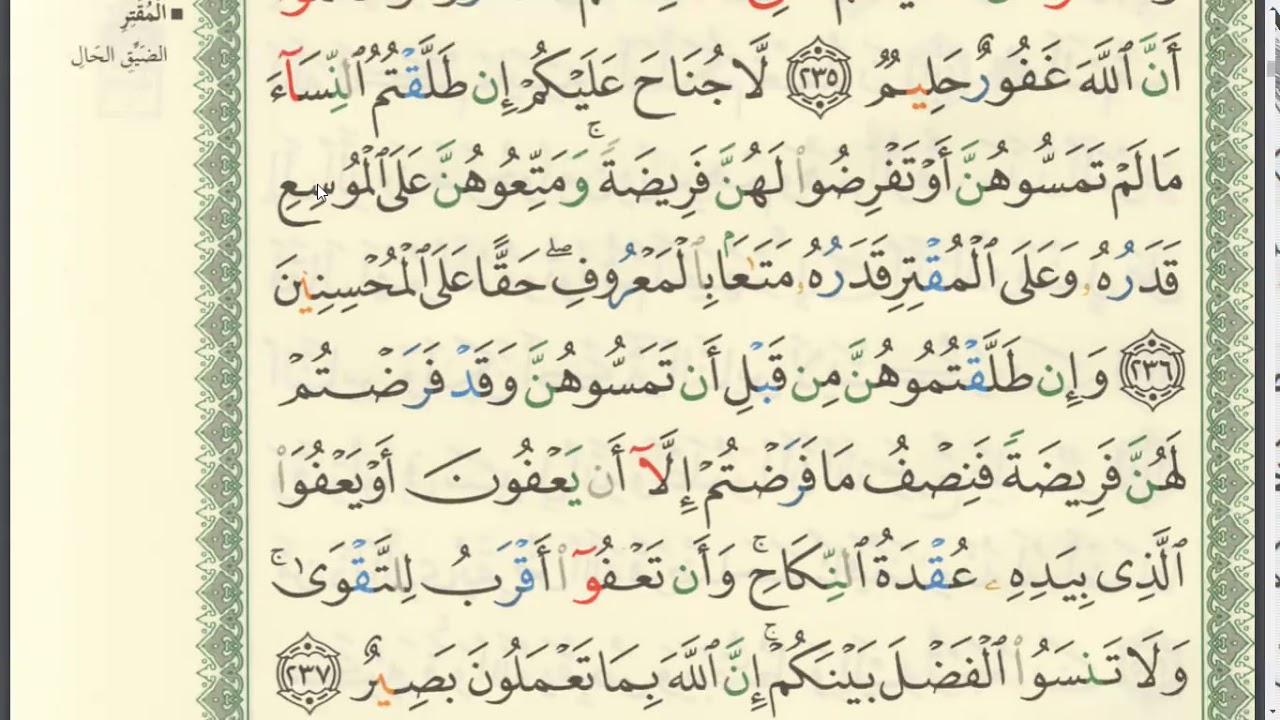 أَنَّ ٱللَّهَ غَفُورٌ حَلِيمٌ ٢٣٥ لَّا جُنَاحَ عَلَيْكُمْ إِن طَلَّقْتُمُ ٱلنِّسَآءَ
مَا لَمْ تَمَسُّوهُنَّ أَوْ تَفْرِضُوا۟ لَهُنَّ فَرِيضَةً ۚ وَمَتِّعُوهُنَّ عَلَى ٱلْمُوسِعِ
قَدَرُهُۥ وَعَلَى ٱلْمُقْتِرِ قَدَرُهُۥ مَتَـٰعًۢا بِٱلْمَعْرُوفِ ۖ حَقًّا عَلَى ٱلْمُحْسِنِينَ
٢٣٦ وَإِن طَلَّقْتُمُوهُنَّ مِن قَبْلِ أَن تَمَسُّوهُنَّ وَقَدْ فَرَضْتُمْ
لَهُنَّ فَرِيضَةً فَنِصْفُ مَا فَرَضْتُمْ إِلَّآ أَن يَعْفُونَ أَوْ يَعْفُوَا۟
ٱلَّذِى بِيَدِهِۦ عُقْدَةُ ٱلنِّكَاحِ ۚ وَأَن تَعْفُوٓا۟ أَقْرَبُ لِلتَّقْوَىٰ ۚ
وَلَا تَنسَوُا۟ ٱلْفَضْلَ بَيْنَكُمْ ۚ إِنَّ ٱللَّهَ بِمَا تَعْمَلُونَ بَصِيرٌ ٢٣٧
■ الْمُقْتِرِ
الضَيِّقِ الحَالِ